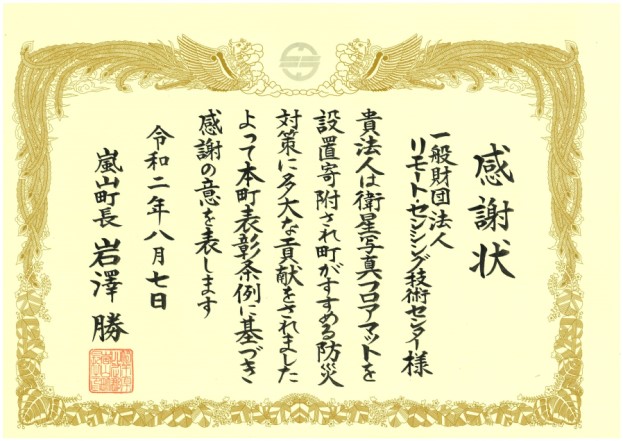 感謝状
一般財団法人
リモート・センシング技術センター様
貴法人は衛星写真フロアマットを
設置寄附され町がすすめる防災
対策に多大な貢献をされました
よって本町表彰条例に基づき
感謝の意を表します
令和二年八月七日
嵐山町長 岩澤勝